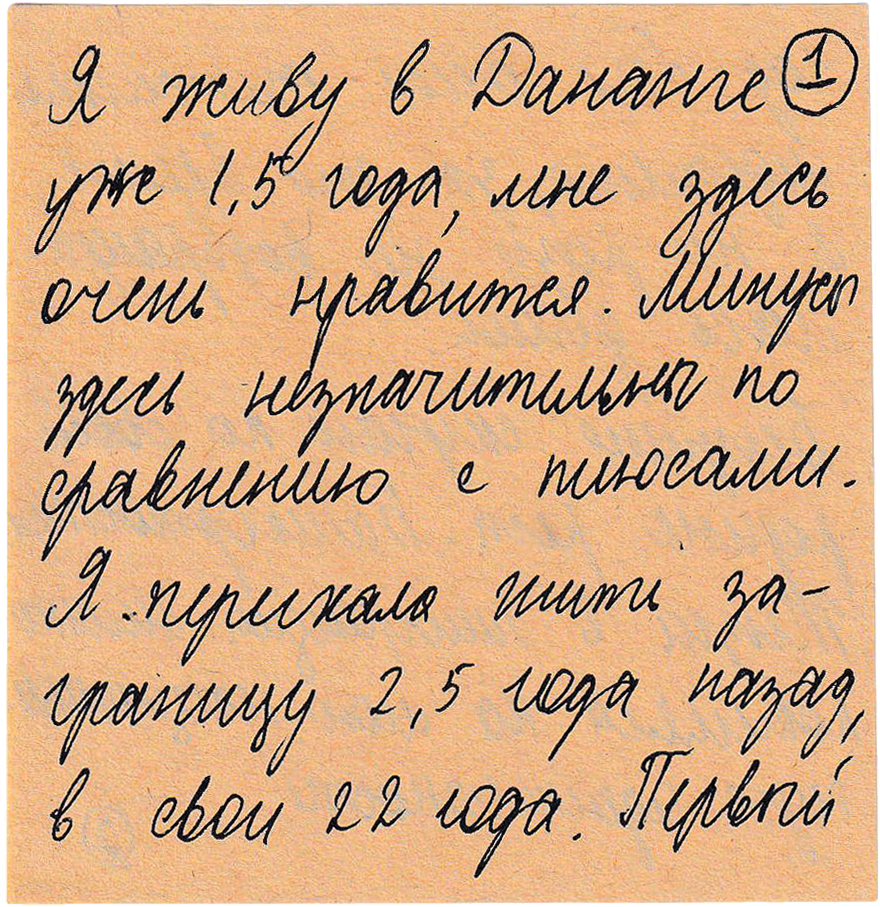 Я живу в Дананге 1
уже 1,5 года, мне здесь
очень нравится. Минусы
здесь незначительны по
сравнению с плюсами.
Я переехала жить за-
границу 2,5 года назад,
в свои 22 года. Первый